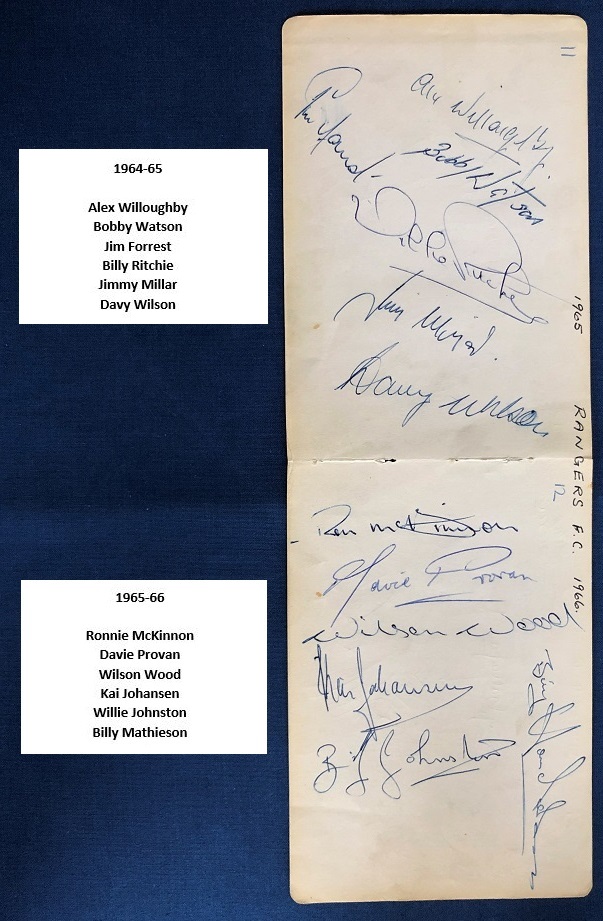 1964-65
Alex Willoughby
Bobby Watson
Jim Forrest
Billy Ritchie
Jimmy Millar
Davy Wilson
1965-66
Ronnie McKinnon
Davie Provan
Wilson Wood
Kai Johansen
Willie Johnston
Billy Mathieson
11
Alex Willoughby
Bobby Watson
Billy Ritchie
Jim Millar.
Davy Wilson
1965 RANGERS F.C. 1966.
12
Ron McKinnon
Davie Provan
Wilson Wood
Kai Johansen
Billy Johnston